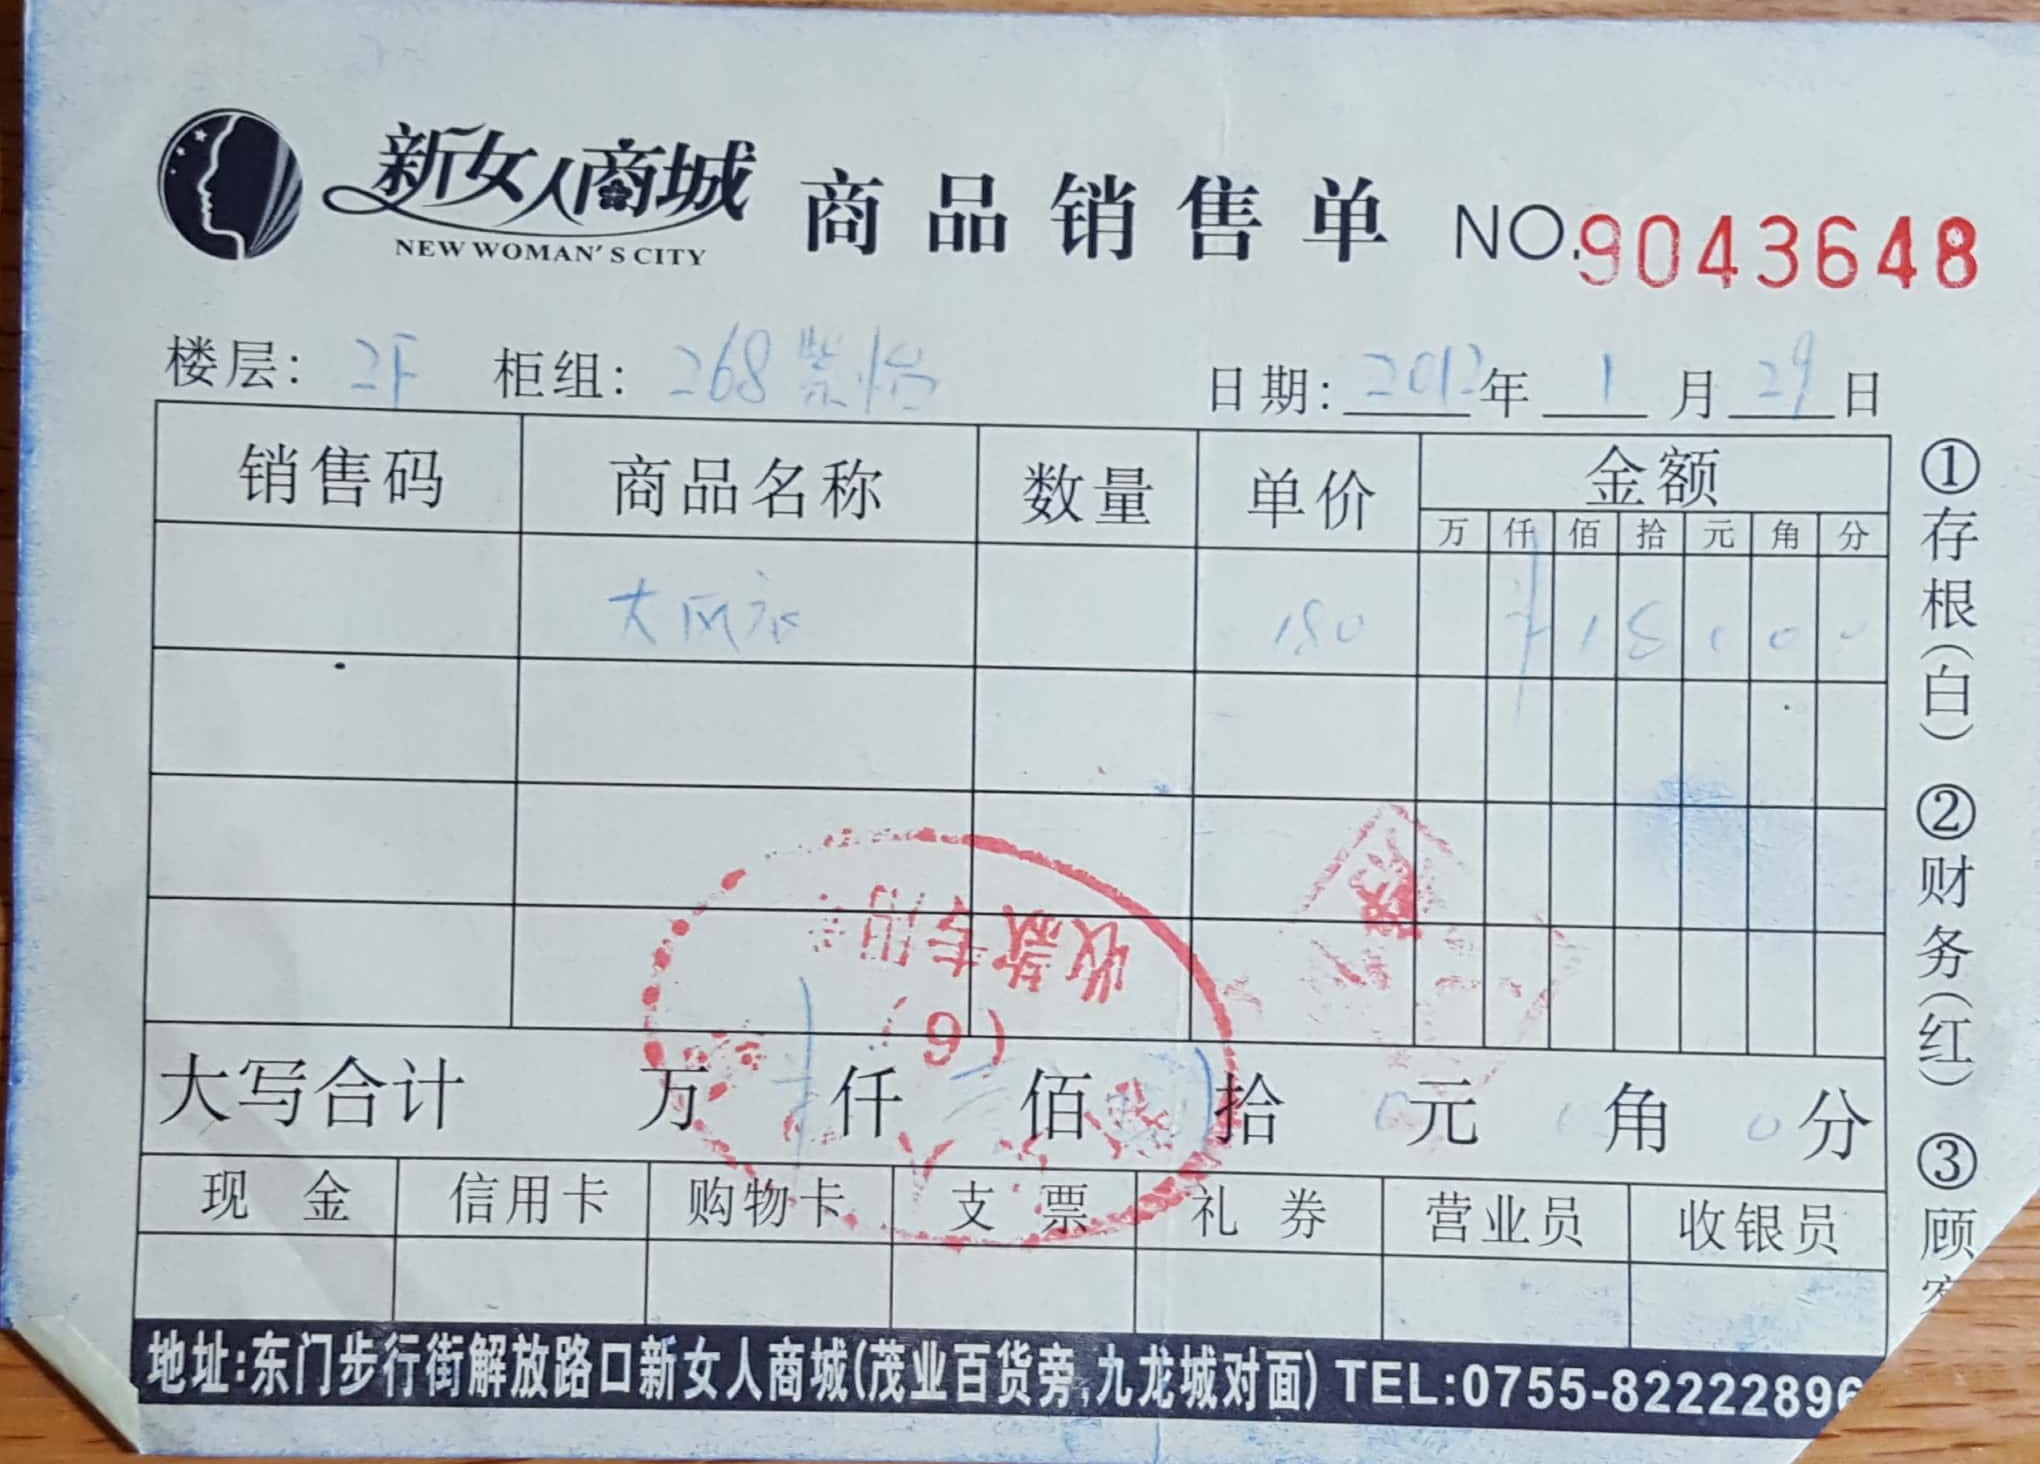 新女人商城
NEW WOMAN'S CITY
商品销售单 NO.9043648
楼层: 2F 柜组: 268紫怡 日期: 2012年 1 月 29 日
销售码 商品名称 数量 单价 金额
万 仟 佰 拾 元 角 分
大风衣 180
大写合计 万 仟 佰 拾 0 元 0 角 0 分
现金 信用卡 购物卡 支票 礼券 营业员 收银员
收款专用章
(6)
地址:东门步行街解放路口新女人商城(茂业百货旁,九龙城对面) TEL:0755-82222896
①存根(白) ②财务(红) ③顾